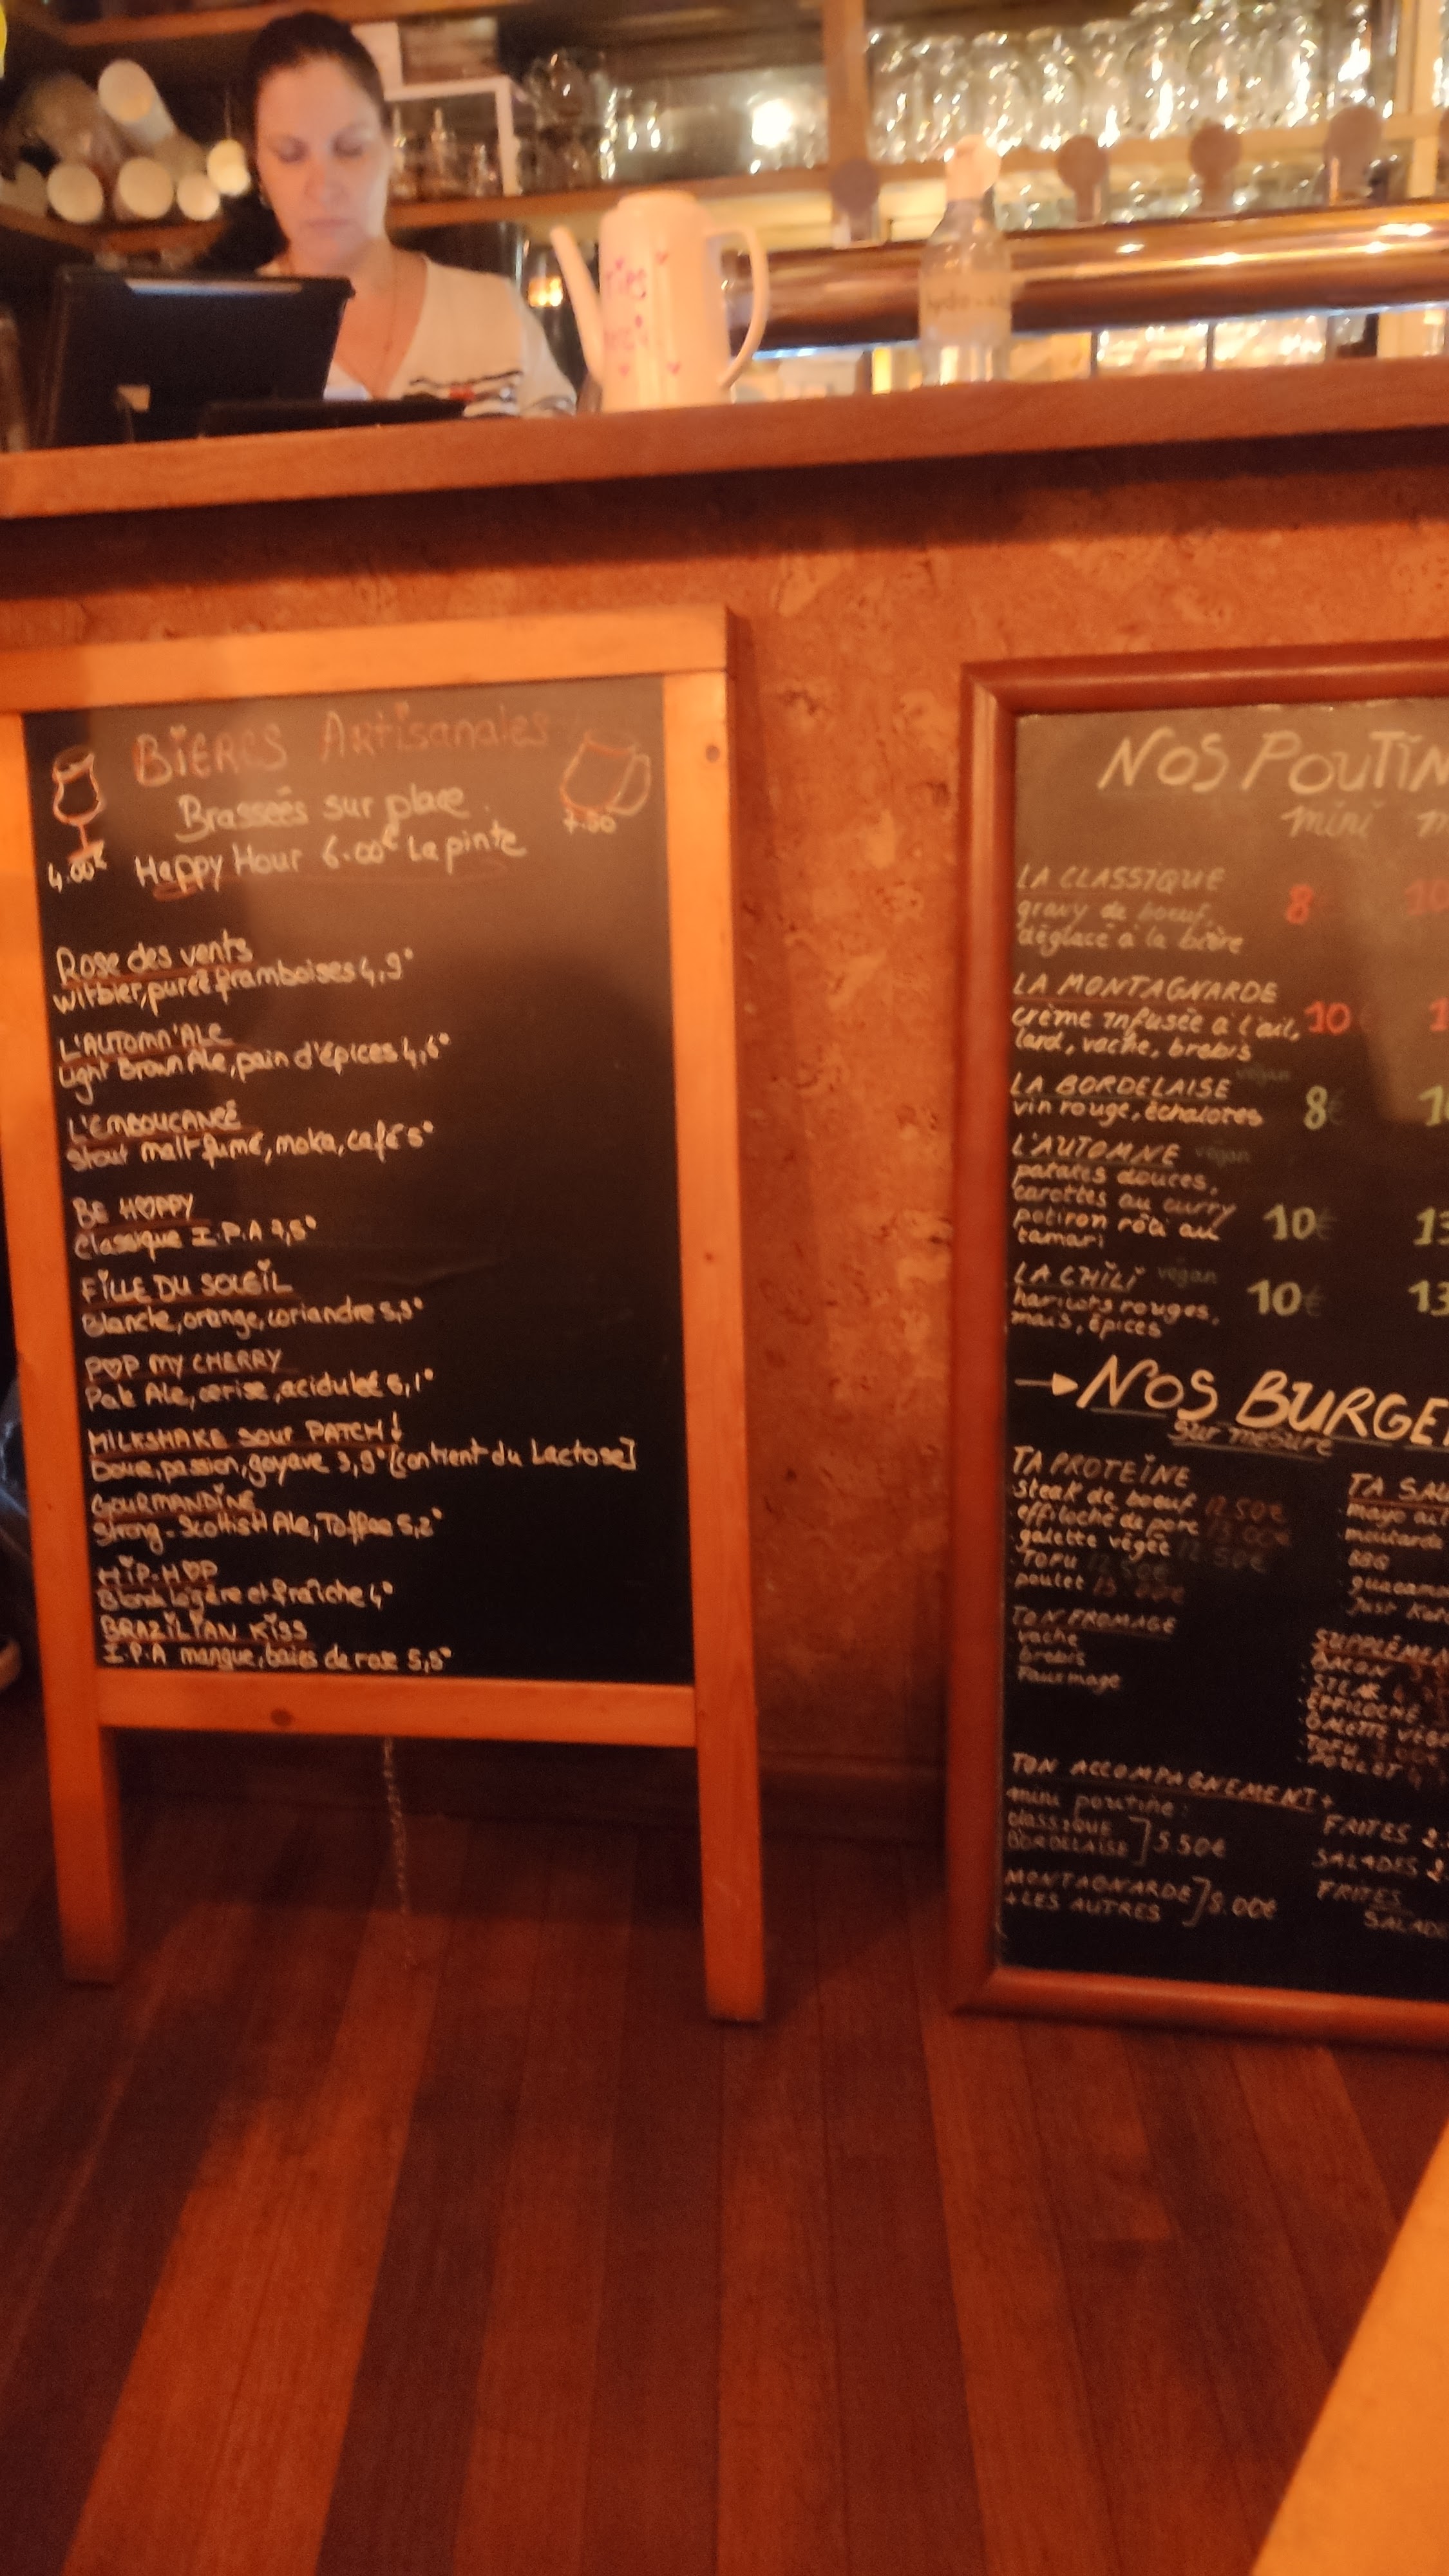 BIERES Artisanales
Brassées sur place
Happy Hour 6.00€ La pinte
4.00€
7.50
Rose des vents
witbier, pureé framboises 4,9°
L'AUTOMN'ALE
Light Brown Ale, pain d'épices 4,6°
L'EMBOUCANÉE
Stout malt fumé, moka, café 5°
BE HOPPY
Classique I.P.A
FILLE DU SOLEIL
Blanche, orange, coriandre 5,5°
POP MY CHERRY
Pale Ale, cerise, acidulée 6,1°
MILKSHAKE SOUR PATCH!
passion, goyave 3,9° [contient du Lactose]
GOURMANDINE
Strong-Scottish Ale, Toffee 5,2°
HIP-HOP
Blonde légère et fraîche 4°
BRAZILIAN KISS
I.P.A mangue, baies de rose 5,5°
NOS POUTIN
mini
LA CLASSIQUE
gravy de boeuf, 8
déglacé à la bière
LA MONTAGNARDE
crème infusée à l'ail, 10
lard, vache, brebis
LA BORDELAISE vegan
vin rouge, échalotes 8€
L'AUTOMNE vegan
patates douces,
carottes au curry
potiron rôti au 10€ 13
tamari
LA CHILI vegan
haricots rouges, 10€ 13
maïs, épices
NOS BURGE
sur mesure
TA PROTEÏNE
steak de boeuf 12.50€
effiloché de porc 13.00€
galette végée 12.50€
TOFU 12.50€
poulet 13.00€
TON FROMAGE
vache
brebis
Fauxmage
TA SAU
mayo ail
moutarde
BBQ
guacam
Just Ke
SUPPLÉMEN
BACON
STEAK
EFFILOCHÉ
GALETTE VÉGÉ
TOFU
POULET
TON ACCOMPAGNEMENT+
mini poutine:
CLASSIQUE
BORDELAISE ] 5.50€
MONTAGNARDE
+LES AUTRES ] 8.00€
FRITES
SALADES
FRITES
SALADE